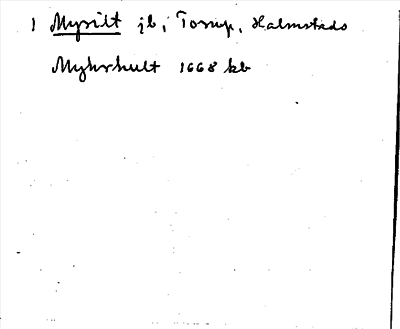 1 Myrilt jb, Torup, Halmstads
Myhrhult 1668 kb